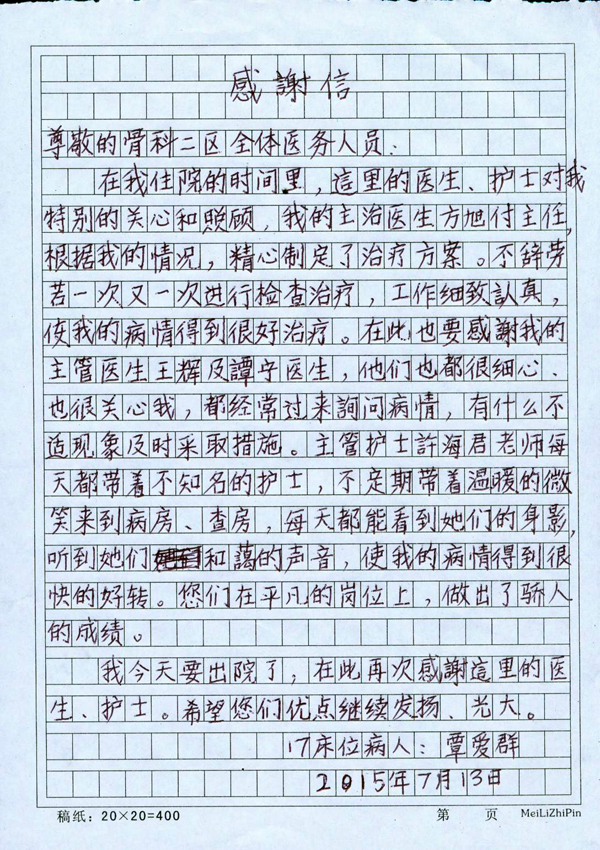 感謝信
尊敬的骨科二区全体医务人员：
在我住院的时间里，這里的医生、护士对我
特别的关心和照顾，我的主治医生方旭付主任，
根据我的情况，精心制定了治疗方案。不辞劳
苦一次又一次进行检查治疗，工作细致認真，
使我的病情得到很好治疗。在此也要感謝我的
主管医生王辉及譚宇医生，他们也都很细心、
也很关心我，都经常过来詢问病情，有什么不
适现象及时采取措施。主管护士許海君老师每
天都带着不知名的护士，不定期带着温暖的微
笑来到病房、查房，每天都能看到她们的身影，
听到她们和藹的声音，使我的病情得到很
快的好转。您们在平凡的岗位上，做出了骄人
的成绩。
我今天要出院了，在此再次感謝這里的医
生、护士。希望您们优点继续发扬、光大。
17床位病人：覃爱群
2015年7月13日
稿纸：20×20=400 第 页 MeiLiZhiPin